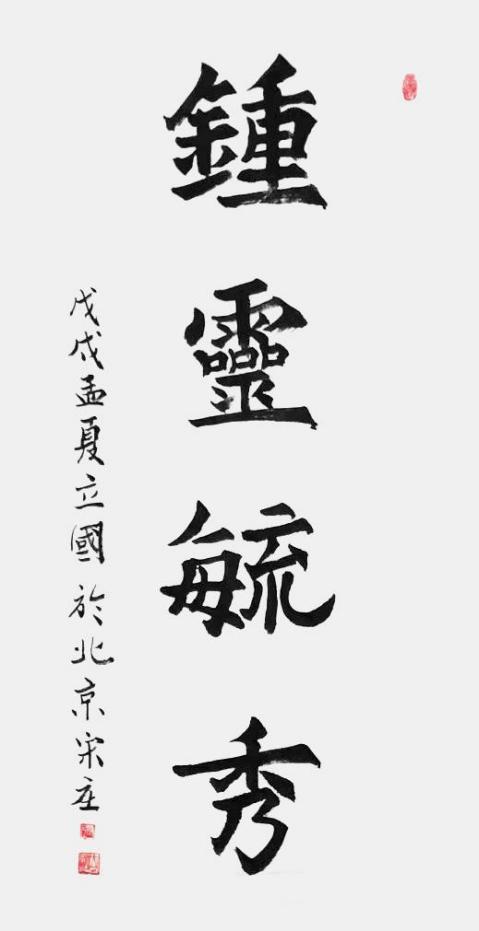 鍾靈毓秀
戊戌孟夏立國於北京宋庄